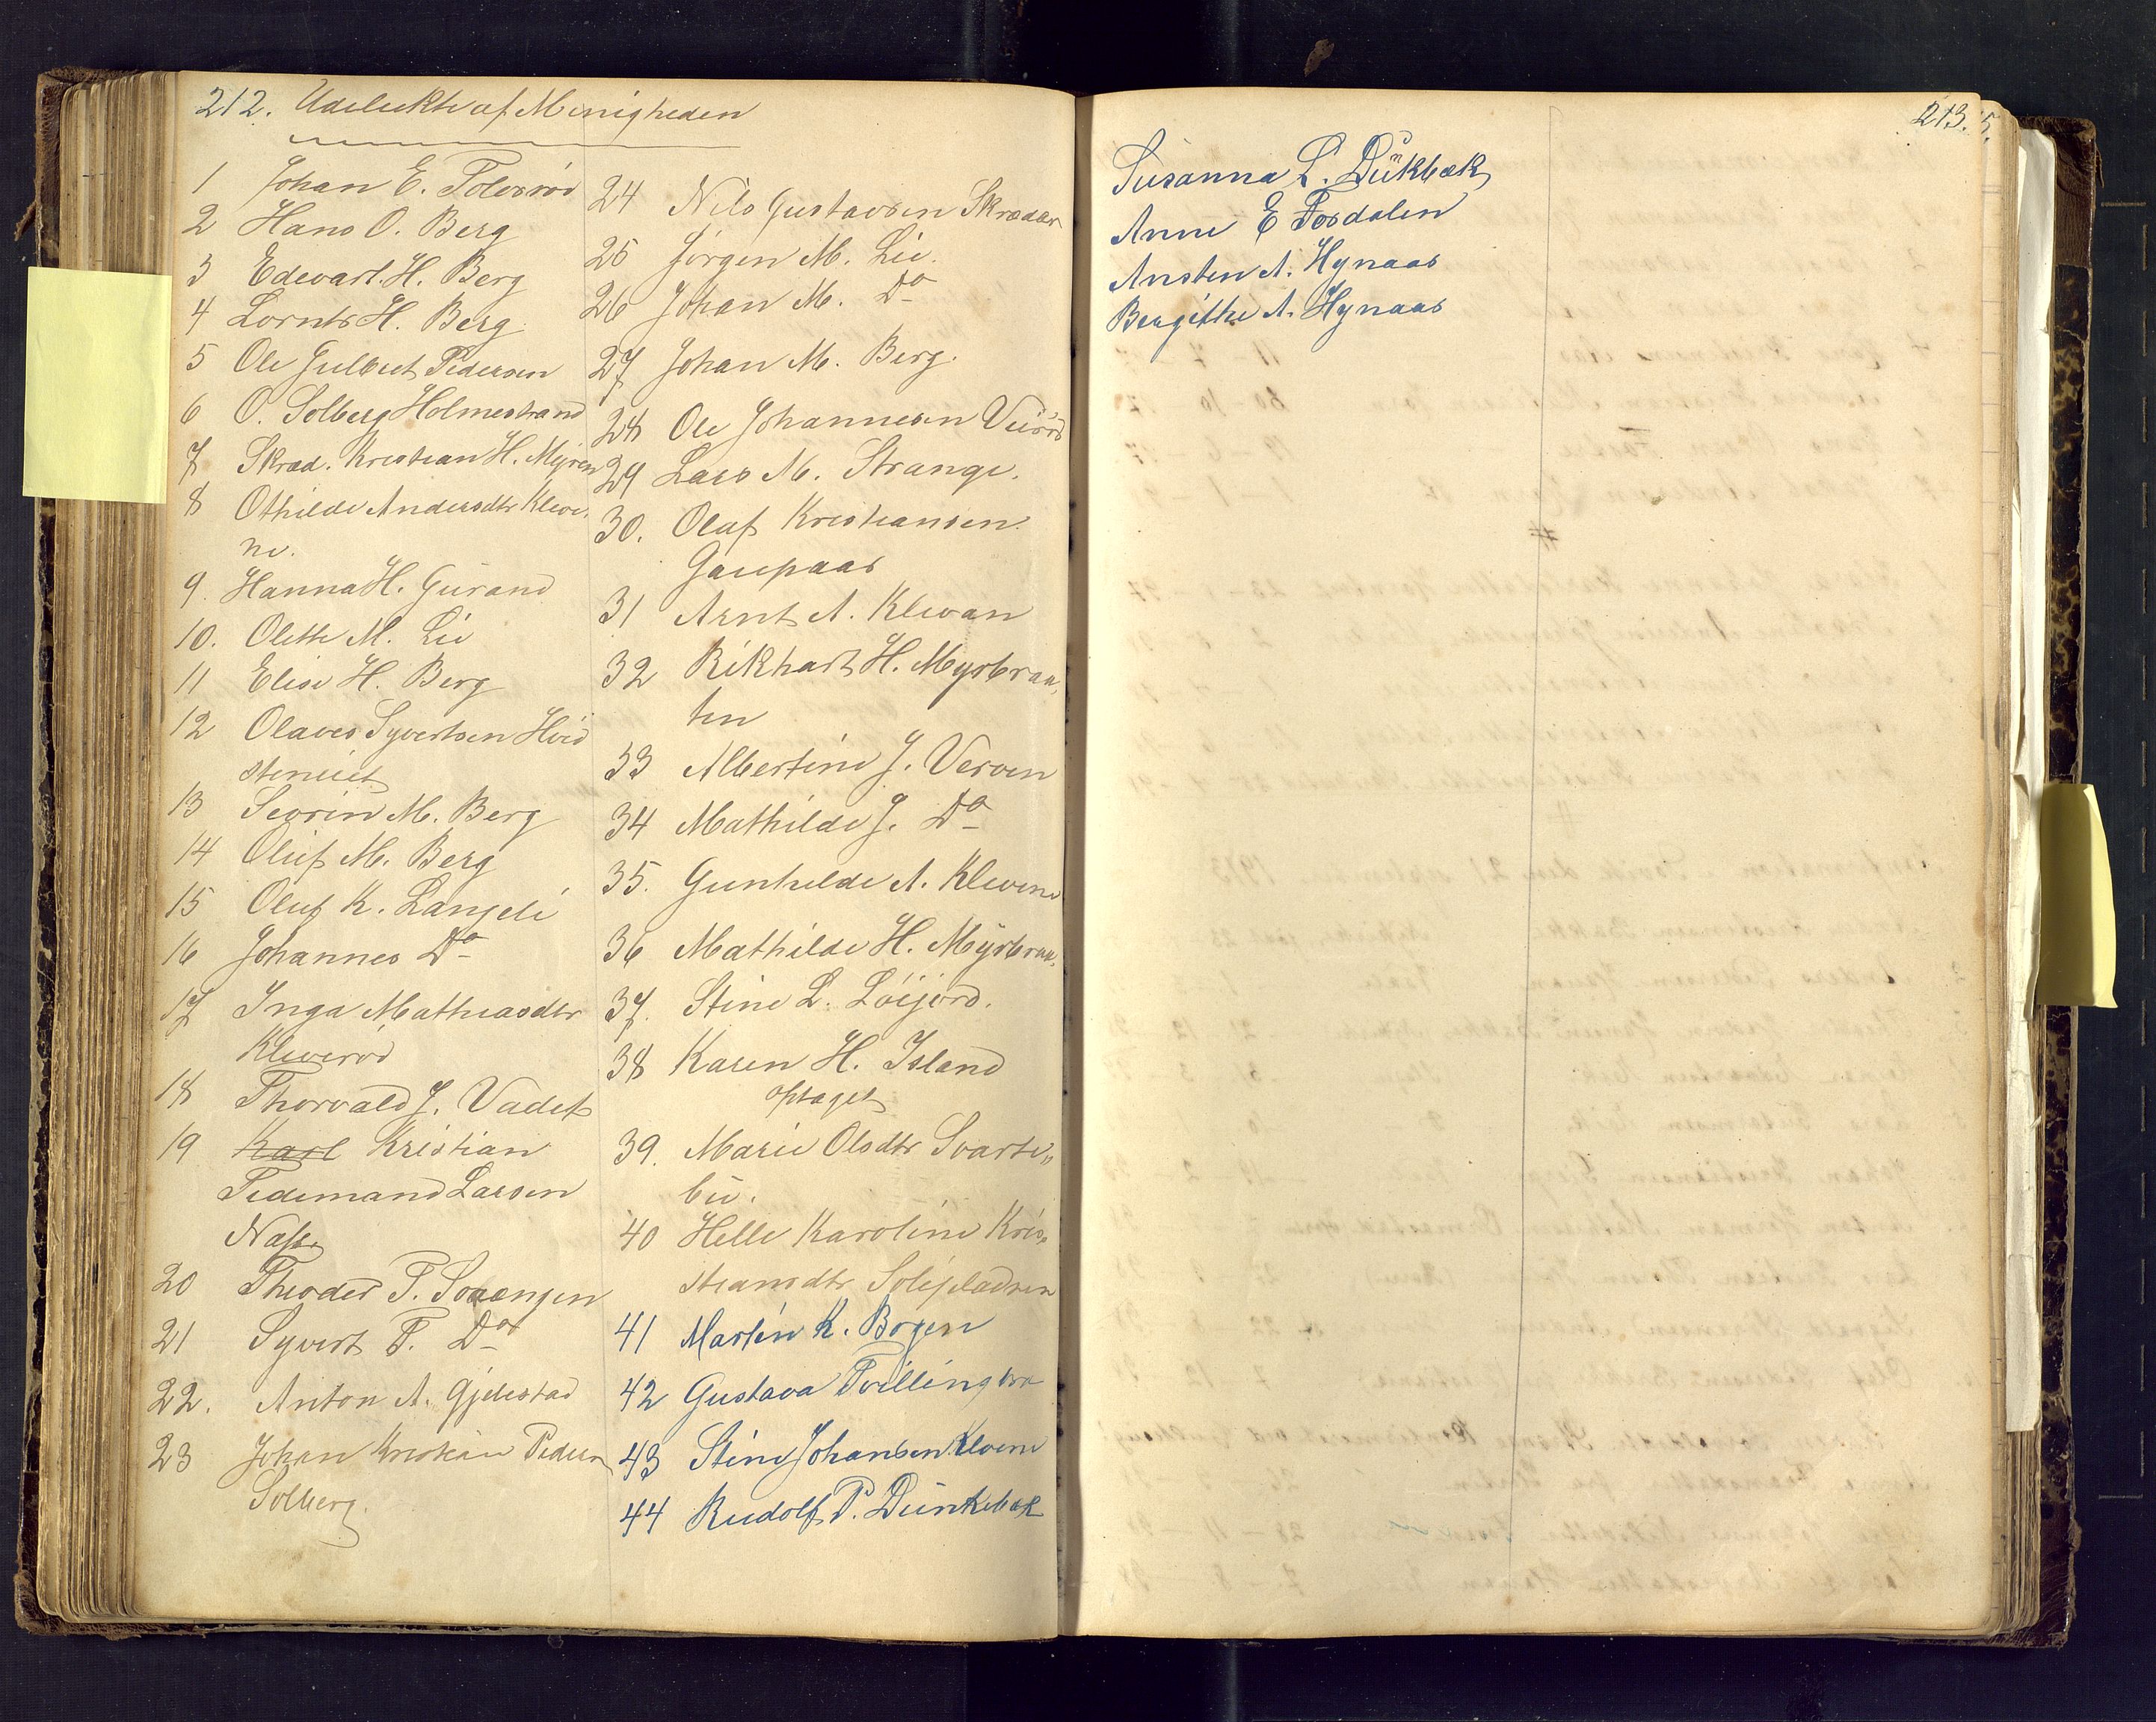 212. Udelukte af Menigheden
1 Johan E. Tolesrød
2 Hans O. Berg
3 Edevart. H. Berg
4 Lornts H. Berg.
5 Ole Gulbert Pedersen
6 O. Solberg Holmestrand
7 Skræd. Kristian H. Myren
8 Othilde Andersdtr Kleve,
ne.
9. Hanna H. Gurand
10. Olette M. Lie
11 Elise H. Berg
12 Olaves Syvertsen Hvid
steniiet
13 Sevrin M. Berg
14 Oluf M. Berg
15 Oluf K. Langeli
16 Johannes Do
17 Inga Mathiasdtr
Kleverød
18 Thorvald J. Vadet
19 Karl Kristian
Tidemand Larsen
Næss
20 Theoder T. Svaengen
21 Syvert T. Do
22. Anton A. Gjelestad
23 Johan Kristian Pedersen
Solberg.
24 Nils Gustavsen Skrædder
25 Jørgen M. Lie.
26 Johan M. Do
27 Johan M. Berg.
28 Ole Johannesen Vuirød
29 Lars M. Strange.
30. Olaf Kristiansen.
Gaupaas
31 Arnt A. Klevan
32 Rikhart H. Myrbraa,
ten
33 Albertine J. Verven
34 Mathilde J. Do
35. Gunhilde A. Klevene
36 Mathilde H. Myrbraa,
37. Stine L. Løijord.
38 Karen H. Island
optaget
39. Marie Olsdtr Svarte,,
bu.
40 Helle Karoline Kris,,
tiansdtr. Soliepladsen
41 Martin K. Bogen
42 Gustava Tvillingbra
43 Stine Johansen Klvene
44 Rudolf P. Dunkebæk
213.
Susanna L. Dunkbæk
Anne E Fosdalen
Ansten A. Hynaas
Bergithe A. Hynaas